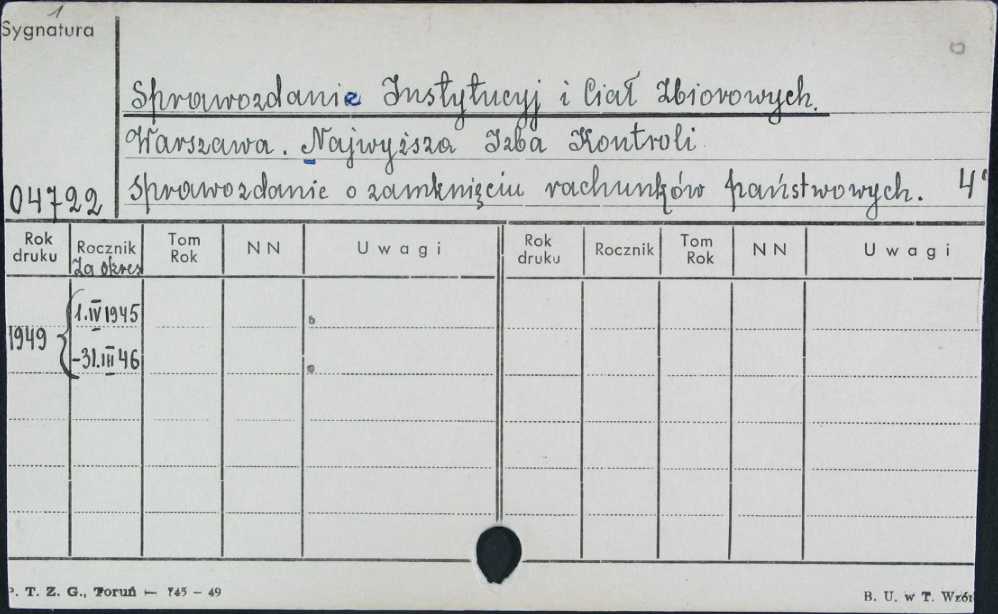 1
Sygnatura
Sprawozdanie Instytucyj i Ciał Zbiorowych.
Warszawa. Najwyższa Izba Kontroli
04722 Sprawozdanie o zamknięciu rachunków państwowych. 4°
Rok druku Rocznik Tom Rok NN Uwagi Rok druku Rocznik Tom Rok NN Uwagi
Za okres
1.IV 1945
1949
-31.III 46
P. T. Z. G., Toruń — 745 – 49 B. U. w T. Wzór